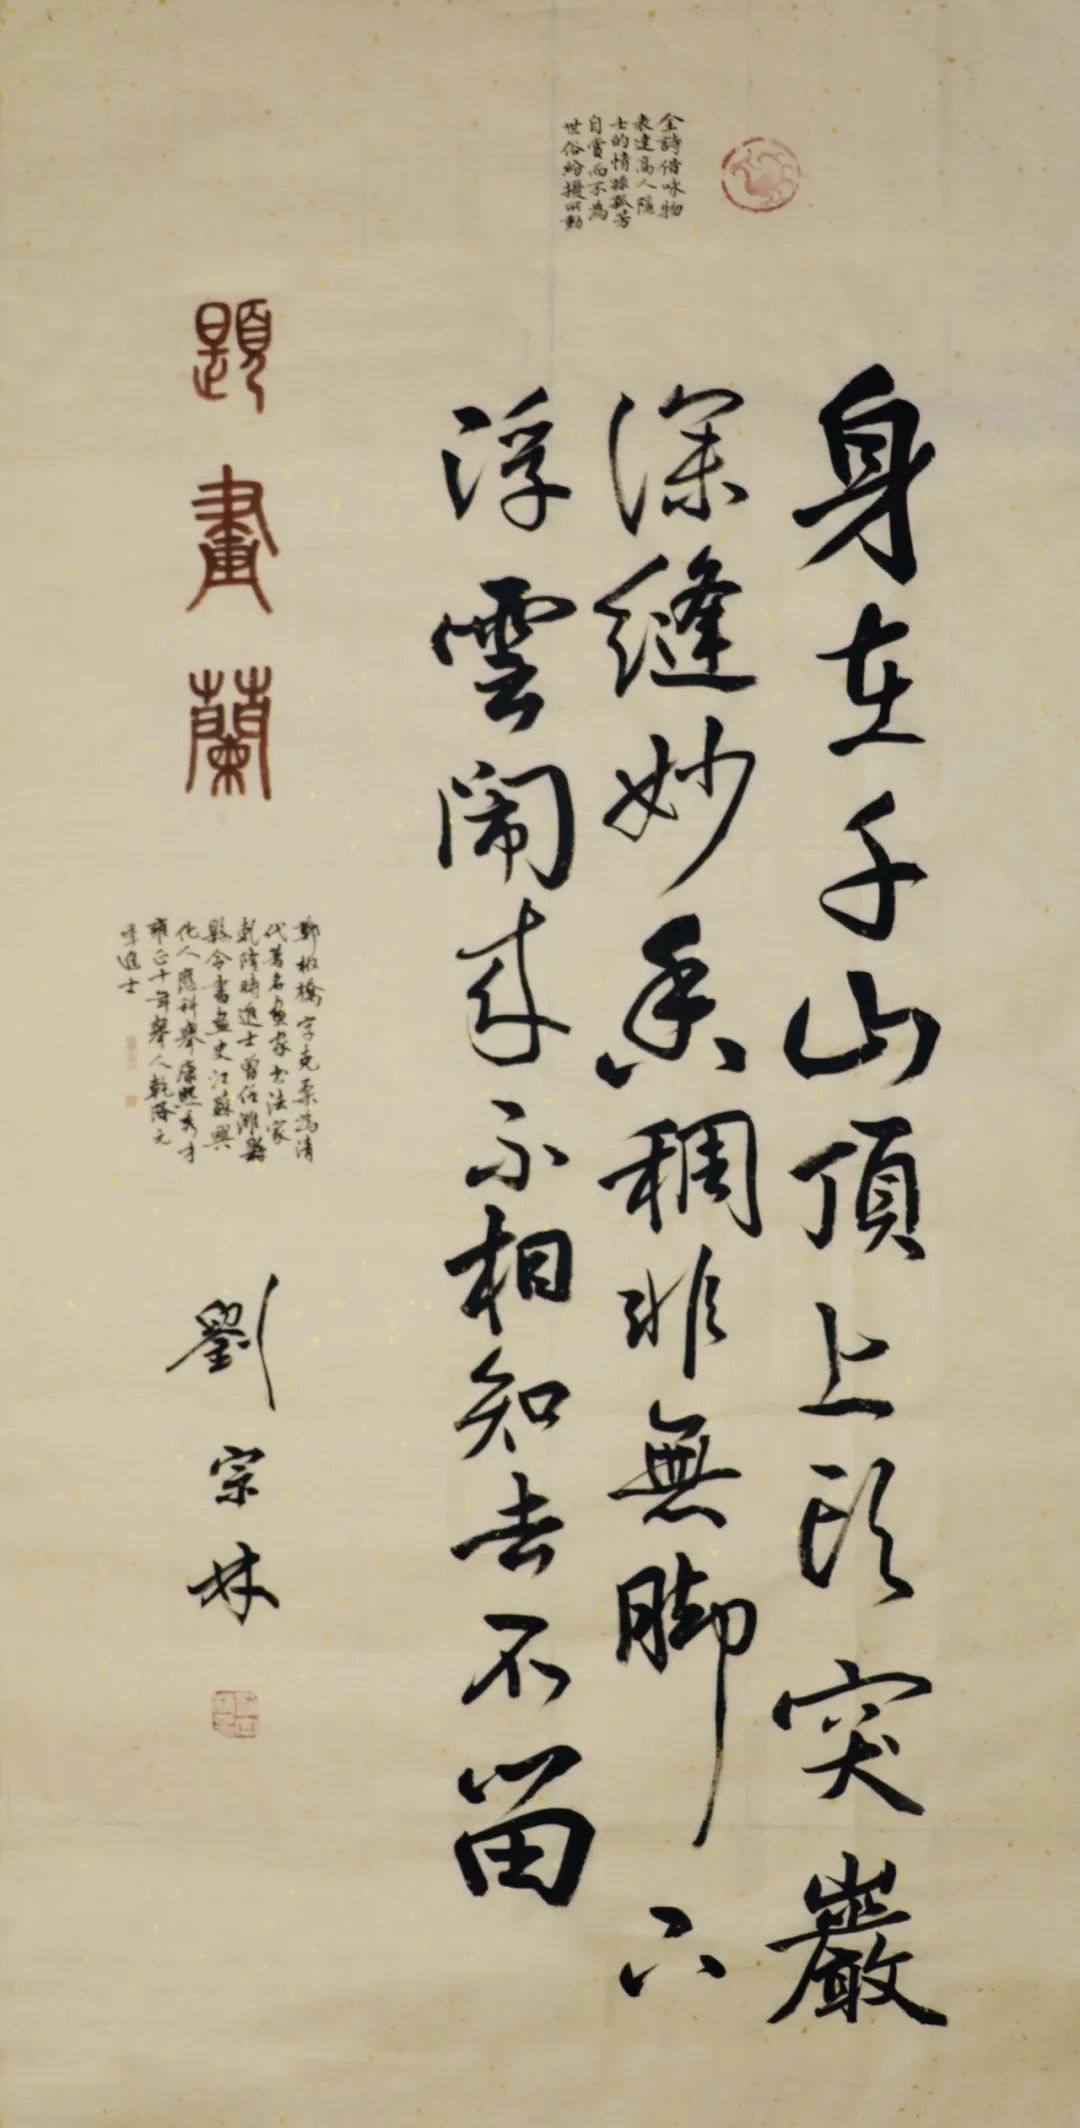 全詩借咏物
表達高人隱
士的情操孤芳
自賞而不為
世俗紛擾所動
身在千山頂上頭突巖
深縫妙香稠非無腳下
浮雲鬧來不相知去不留
題畫蘭
鄭板橋字克柔為清
代著名畫家書法家
乾隆時進士曾任濰縣
縣令書畫史江蘇興
化人應科舉康熙秀才
雍正十年舉人乾隆元
年進士
劉宗林